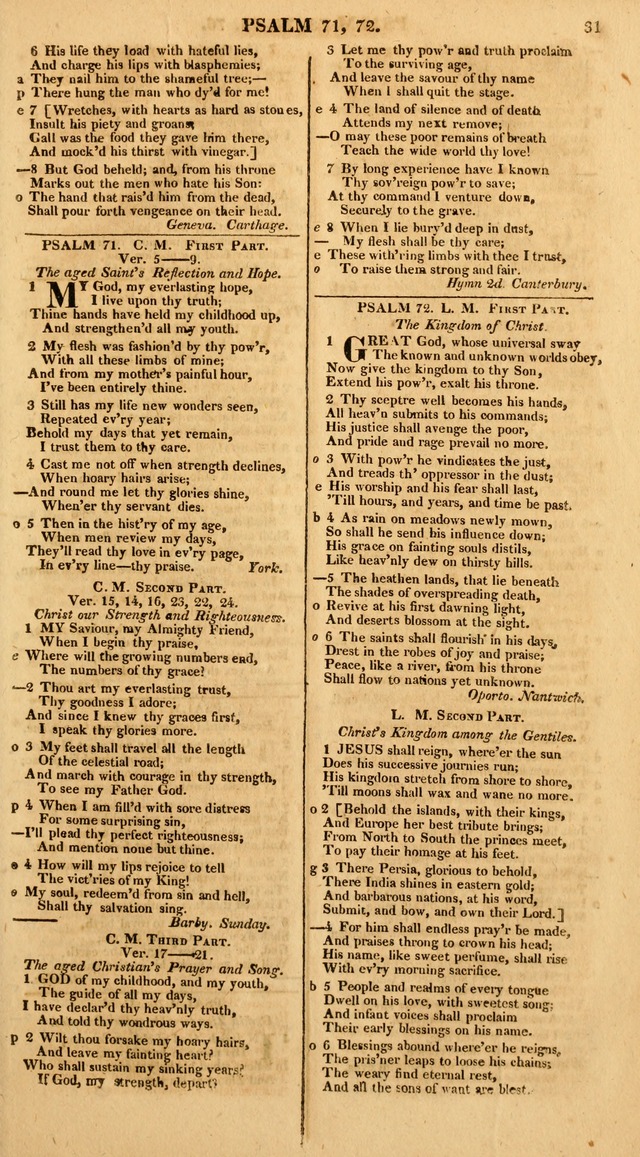 PSALM 71, 72.
31
6 His life they load with hateful lies,
And charge his lips with blasphemies;
a They nail him to the shameful tree;—
p There hung the man who dy'd for me!
e 7 [Wretches, with hearts as hard as stones,
Insult his piety and groans;
Gall was the food they gave him there,
And mock'd his thirst with vinegar.]
—8 But God beheld; and, from his throne
Marks out the men who hate his Son:
o The hand that rais'd him from the dead,
Shall pour forth vengeance on their head.
Geneva. Carthage.
PSALM 71. C. M. FIRST PART.
Ver. 5—9.
The aged Saint's Reflection and Hope.
1 MY God, my everlasting hope,
I live upon thy truth;
Thine hands have held my childhood up,
And strengthen'd all my youth.
2 My flesh was fashion'd by thy pow'r,
With all these limbs of mine;
And from my mother's painful hour,
I've been entirely thine.
3 Still has my life new wonders seen,
Repeated ev'ry year;
Behold my days that yet remain,
I trust them to thy care.
4 Cast me not off when strength declines,
When hoary hairs arise;
—And round me let thy glories shine,
When'er thy servant dies.
o 5 Then in the hist'ry of my age,
When men review my days,
They'll read thy love in ev'ry page,
In ev'ry line—thy praise. York.
C. M. SECOND PART.
Ver. 15, 14, 16, 23, 22, 24.
Christ our Strength and Righteousness.
1 MY Saviour, my Almighty Friend,
When I begin thy praise,
e Where will the growing numbers end,
The numbers of thy grace?
—2 Thou art my everlasting trust,
Thy goodness I adore;
And since I knew thy graces first,
I speak thy glories more.
o 3 My feet shall travel all the length
Of the celestial road;
And march with courage in thy strength,
To see my Father God.
p 4 When I am fill'd with sore distress
For some surprising sin,
—I'll plead thy perfect righteousness;
And mention none but thine.
e 4 How will my lips rejoice to tell
The vict'ries of my King!
o My soul, redeem'd from sin and hell,
Shall thy salvation sing.
Barby. Sunday.
C. M. THIRD PART.
Ver. 17—21.
The aged Christian's Prayer and Song.
1 GOD of my childhood, and my youth,
The guide of all my days,
I have declar'd thy heav'nly truth,
And told thy wondrous ways.
p 2 Wilt thou forsake my hoary hairs,
And leave my fainting heart?
Who shall sustain my sinking years?
If God, my strength, depart?
3 Let me thy pow'r and truth proclaim
To the surviving age,
And leave the savour of thy name
When I shall quit the stage.
e 4 The land of silence and of death
Attends my next remove;
—O may these poor remains of breath
Teach the wide world thy love!
7 By long experience have I known
Thy sov'reign pow'r to save;
At thy command I venture down,
Securely to the grave.
e 8 When I lie bury'd deep in dust,
— My flesh shall be thy care;
e These with'ring limbs with thee I trust,
o To raise them strong and fair.
Hymn 2d. Canterbury.
PSALM 72. L. M. FIRST PART.
The Kingdom of Christ.
1 GREAT God, whose universal sway
The known and unknown worlds obey,
Now give the kingdom to thy Son,
Extend his pow'r, exalt his throne.
2 Thy sceptre well becomes his hands,
All heav'n submits to his commands;
His justice shall avenge the poor,
And pride and rage prevail no more.
o 3 With pow'r he vindicates the just,
And treads th' oppressor in the dust;
e His worship and his fear shall last,
'Till hours, and years, and time be past.
b 4 As rain on meadows newly mown,
So shall he send his influence down;
His grace on fainting souls distils,
Like heav'nly dew on thirsty hills.
—5 The heathen lands, that lie beneath
The shades of overspreading death,
o Revive at his first dawning light,
And deserts blossom at the sight.
o 6 The saints shall flourish in his days,
Drest in the robes of joy and praise;
Peace, like a river, from his throne
Shall flow to nations yet unknown.
Oporto. Nantwich.
L. M. SECOND PART.
Christ's Kingdom among the Gentiles.
1 JESUS shall reign, where'er the sun
Does his successive journies run;
His kingdom stretch from shore to shore,
'Till moons shall wax and wane no more.
o 2 [Behold the islands, with their kings,
And Europe her best tribute brings;
From North to South the princes meet,
To pay their homage at his feet.
g 3 There Persia, glorious to behold,
There India shines in eastern gold;
And barbarous nations, at his word,
Submit, and bow, and own their Lord.]
—4 For him shall endless pray'r be made,
And praises throng to crown his head;
His name, like sweet perfume, shall rise
With ev'ry morning sacrifice.
b 5 People and realms of every tongue
Dwell on his love, with sweetest song;
And infant voices shall proclaim
Their early blessings on his name.
o 6 Blessings abound where'er he reigns,
The pris'ner leaps to loose his chains;
The weary find eternal rest,
And all the sons of want are blest.